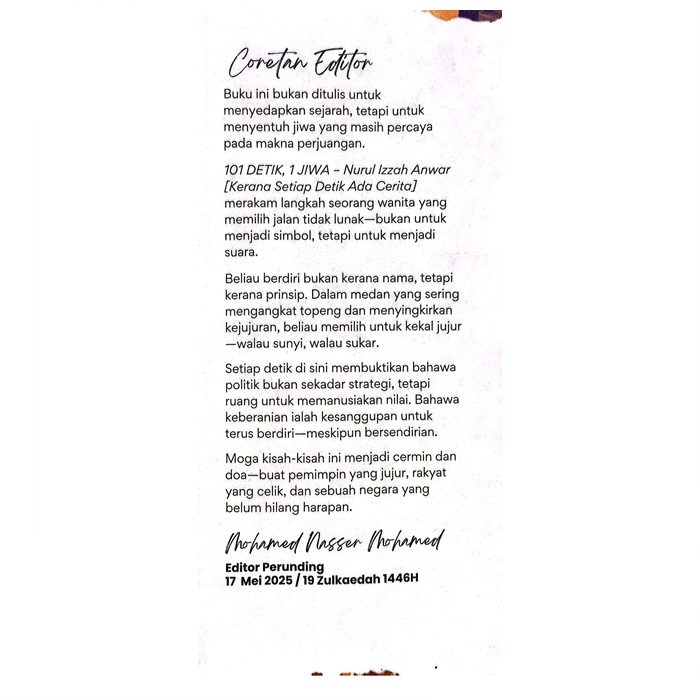 Coretan Editor
Buku ini bukan ditulis untuk
menyedapkan sejarah, tetapi untuk
menyentuh jiwa yang masih percaya
pada makna perjuangan.
101 DETIK, 1 JIWA – Nurul Izzah Anwar
[Kerana Setiap Detik Ada Cerita]
merakam langkah seorang wanita yang
memilih jalan tidak lunak—bukan untuk
menjadi simbol, tetapi untuk menjadi
suara.
Beliau berdiri bukan kerana nama, tetapi
kerana prinsip. Dalam medan yang sering
mengangkat topeng dan menyingkirkan
kejujuran, beliau memilih untuk kekal jujur
—walau sunyi, walau sukar.
Setiap detik di sini membuktikan bahawa
politik bukan sekadar strategi, tetapi
ruang untuk memanusiakan nilai. Bahawa
keberanian ialah kesanggupan untuk
terus berdiri—meskipun bersendirian.
Moga kisah-kisah ini menjadi cermin dan
doa—buat pemimpin yang jujur, rakyat
yang celik, dan sebuah negara yang
belum hilang harapan.
Mohamed Nasser Mohamed
Editor Perunding
17 Mei 2025 / 19 Zulkaedah 1446H